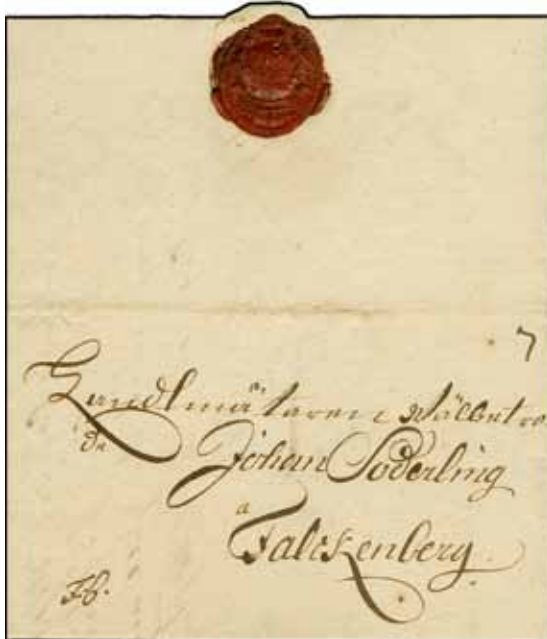 7
Landtmätaren Wälbetro
de
Johan Söderling
a
Falckenberg.